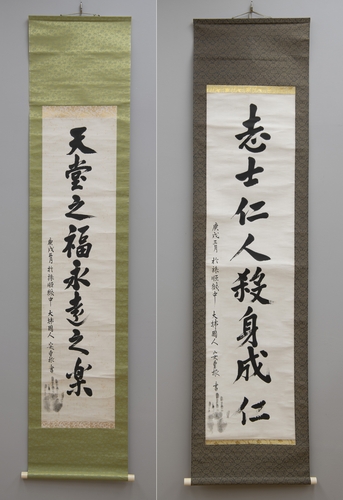 天堂之福永遠之楽
庚戌三月 於旅順獄中 大韓國人 安重根 書
志士仁人殺身成仁
庚戌三月 於旅順獄中 大韓國人 安重根 書